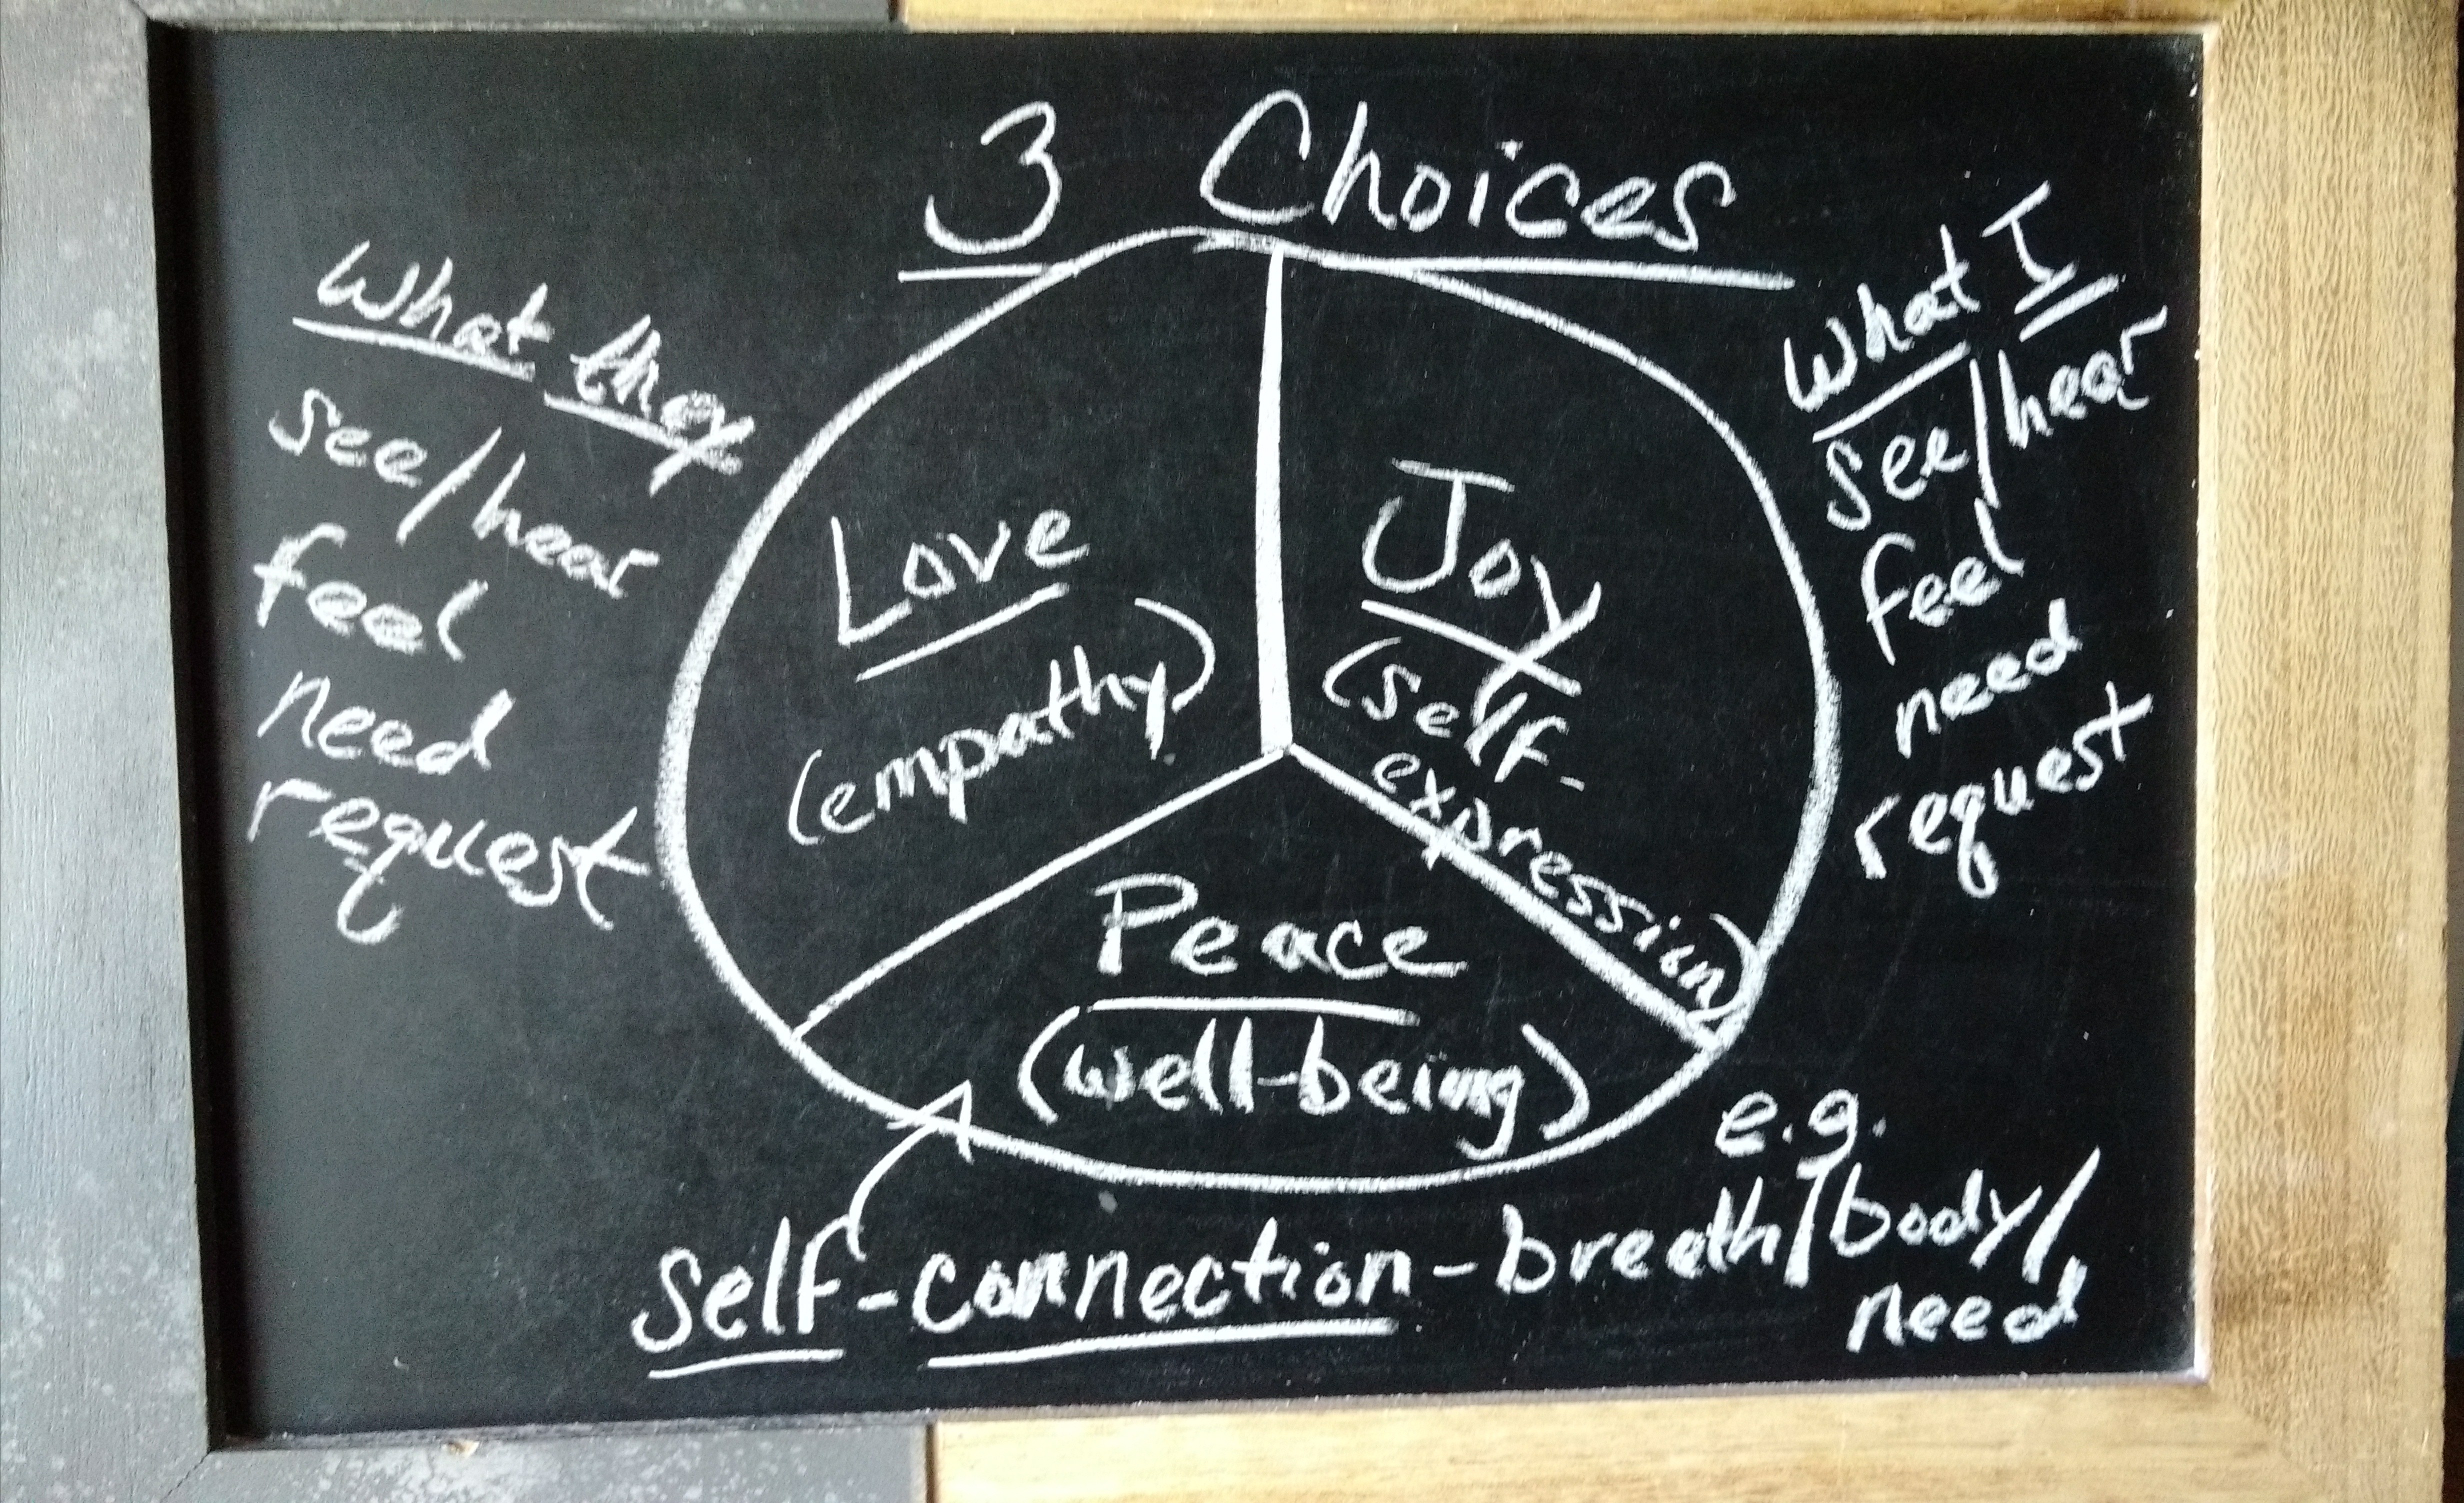 3 Choices
What they
see/hear
feel
need
request
Love
(empathy)
Joy
(self-
expression)
What I
see/hear
feel
need
request
Peace
(well-being)
e.g.
self-connection-breath/body/
need